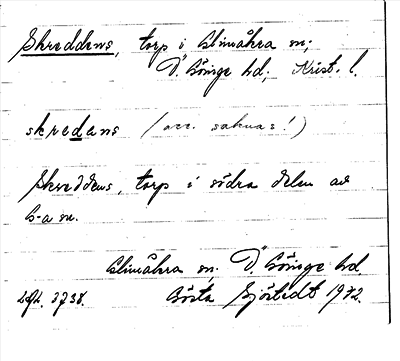 Skreddens, torp i Glimåkra sn;
Ö. Göinge hd; Krist. l.
skredens (acc. saknas!)
Skreddens, torp i södra delen av
G-a sn.
Glimåkra sn, Ö. Göinge hd.
acc. 3738. Gösta Sjöstedt 1972.